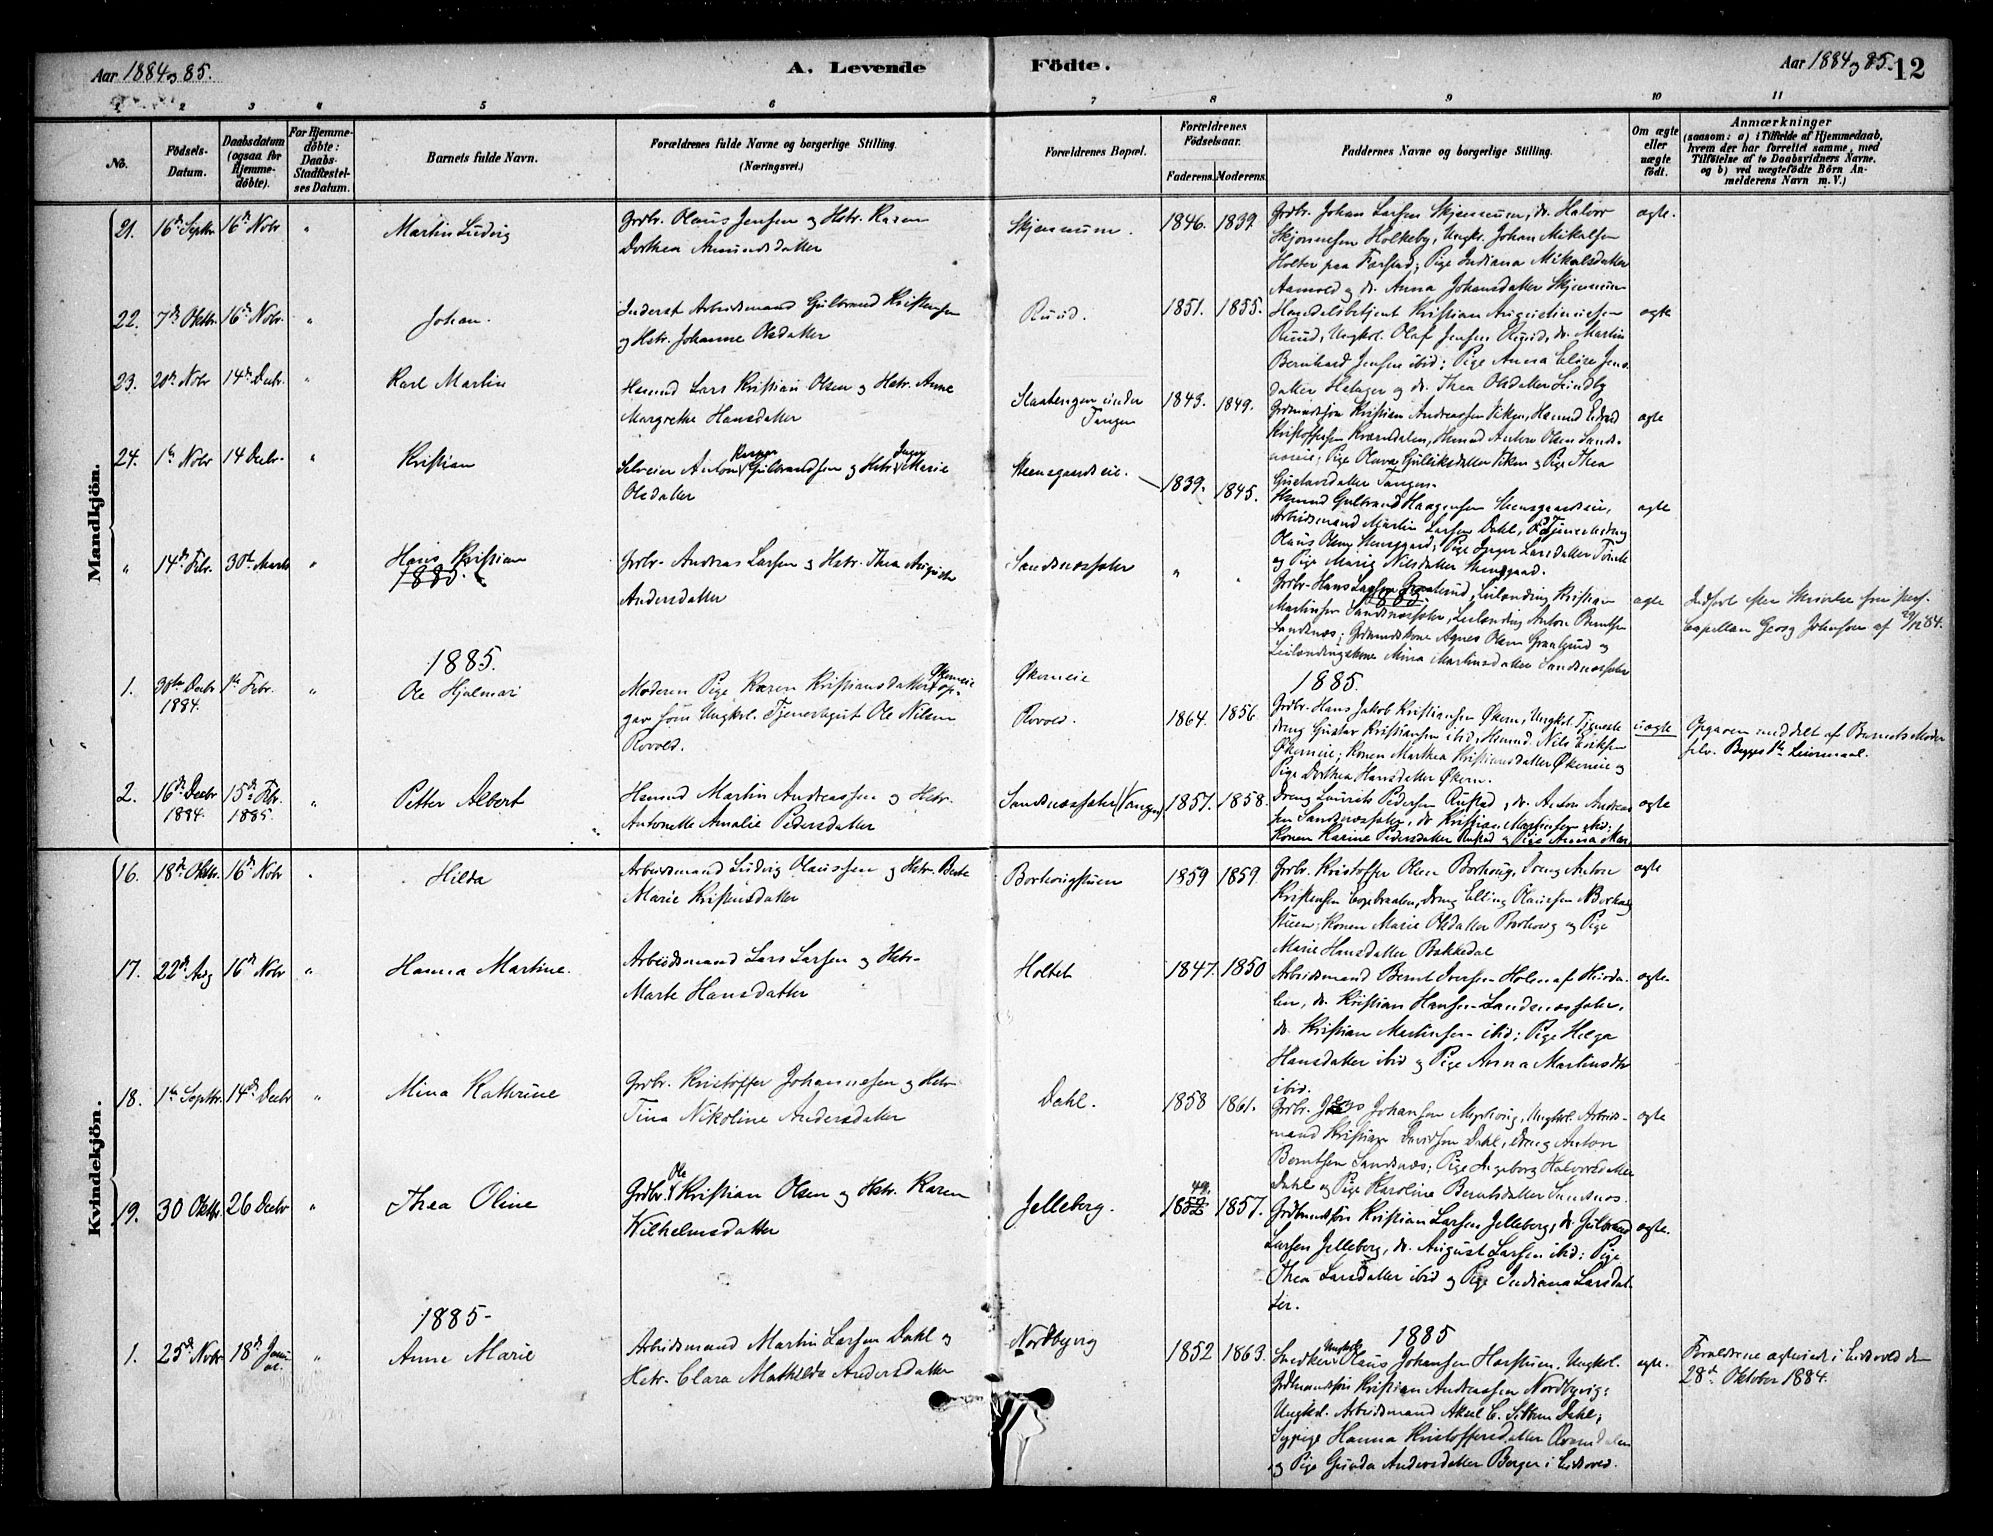 Aar 1884 og 85.
A. Levende
Födte.
Aar 1884 og 85.
12
1 2 3 4 5 6 7 8 9 10 11
No.
Födsels-
Datum.
Daabsdatum
(ogsaa for
Hjemme-
döbte).
For Hjemme-
döbte:
Daabs-
Stadfæstel-
ses Datum.
Barnets fulde Navn.
Forældrenes fulde Navne og borgerlige Stilling.
(Næringsvei.)
Forældrenes Bopæl.
Forældrenes
Födselsaar.
Faderens. Moderens.
Faddernes Navne og borgerlige Stilling.
Om ægte
eller
uægte
födt.
Anmærkninger
(saasom: a) i Tilfælde af Hjemmedaab,
hvem der har forrettet samme, med
Tilföielse af to Daabsvidners Navne.
og b) ved uægtefödte Börn An-
melderens Navn m. V.)
Mandkjön.
21. 16de Septbr 16de Novbr " Martin Ludvig
Grdbr. Olaus Jensen og Hstr. Karen
Dorthea Amundsdatter
Skjennum. 1846. 1839.
Grdbr. Johan Larsen Skjennum, do. Halvor
Holkeby, Ungkr. Johan Mikalsen
Holter paa Farstad; Pige Indiana Mikalsdatter
Aamold og do. Anna Johansdatter Skjennum
ægte.
22. 7de Oktbr. 16de Novbr. " Johan.
Inderst Arbeidsmand Gulbrand Kristensen
og Hstr. Johanne Olsdatter
Ruud. 1851. 1855.
Handelsbetjent Kristian Augustinussen
Ruud, Ungkrl. Olaf Jensen Ruud, do. Martin
Bernhard Jensen ibid; Pige Anna Elise Jens-
datter Helager og do. Thea Olsdatter Lindby
ægte
23. 20de Novbr 14de Decbr. " Karl Martin
Hsmd Lars Kristian Olsen og Hstr. Anne
Margrethe Hansdatter
Slaatengen under
Tangen
1843. 1849.
Grdmandssøn Kristian Andreassen Viken, Hsmd
Kristoffersen Kværndalen, Hsmd Anton Olsen Sand-
Pige Olava Gulliksdatter Viken og Pige Thea
Gustavsdatter Tangen.
ægte
24. 1ste Novbr 14 Decbr. " Kristian
Selveier Anton Kasper Gulbrandsen og Hstr. Inger Marie
Olsdatter
Steensgaardeie. 1839. 1845.
Hsmd Gulbrand Haagensen Steensgaardeie,
Arbeidsmand Martin Larsen Dahl, Tjenestedreng
Olaus Olsen Stensgaard; Pige Inger Larsdatter
og Pige Marie Nilsdatter Stensgaard.
ægte
" 14de Febr. 30te Marts " Hans Kristian
1885.
Grdbr. Andreas Larsen og Hstr. Thea Auguste
Andersdatter
Sandsnæssæter " "
Grdbr. Hans Larsen Graalrud, Leilænding Kristian
1885.
Martinsen Sandsnæssæter, Leilænding Anton Berntsen
Sandsnæs; Grdmandskone Agnes Olsen Graalrud og
Leilændingskone Mina Martinsdatter Sandsnæssæter
ægte Indført efter Skrivelse fra pers.
Capellan Georg Johnson af 29/12 84.
1885.
1885.
1. 30te Decbr 1ste Febr. " Ole Hjalmar
1884.
Moderen Pige Karen Kristiansdatter Økerneie op-
gav som Ungkrl. Tjenestegut Ole Nilsen
Rovold.
Økerneie
Rovold. 1864. 1856.
Grdbr. Hans Jakob Kristiansen Økern, Ungkrl. Tjeneste
dreng Gustav Kristiansen ibid, Hsmd. Nils Eriksen
Økerneie; Konen Marthea Kristiansdatter Økerneie og
Pige Dorthea Hansdatter Økern.
uægte Opgaven meddelt af Barnets Moder
selv. Begges 1ste Leiermaal.
2. 16de Decbr 15de Febr. " Petter Albert
1884. 1885.
Hsmd Martin Andreassen og Hstr.
Antonette Amalie Pedersdatter
Sandsnæssæter (Vangen) 1857. 1858.
Dreng Laurits Pedersen Rustad, do. Anton Andreas
sen Sandsnæssæter, do. Kristian Martinsen ibid;
Konen Karine Pedersdatter Rustad og Pige Anna Mar
ægte
Kvindekjön.
16. 18de Oktbr. 16de Novbr " Hilda
Arbeidsmand Ludvig Olaussen og Hstr. Berte
Marie Kristensdatter
Borhougstuen 1859 1859.
Grdbr. Kristoffer Olsen Borhoug, Dreng Anton
Kristensen, Dreng Elling Olaussen Borhoug
stuen; Konen Marie Olsdatter Borhoug og Pige
Marie Hansdatter Bakkedal
ægte
17. 22de Aug 16de Novbr " Hanna Martine.
Arbeidsmand Lars Larsen og Hstr.
Marte Hansdatter
Holtet 1847. 1850
Arbeidsmand Bernt Iversen Holen af Hurda-
len, do. Kristian Hansen Sandsnæssæter,
do. Kristian Martinsen ibid; Pige Helga
Hansdatter ibid og Pige Anna Martinsdtr
ibid.
ægte
18. 1ste Septbr. 14de Decbr " Mina Kathrine
Grdbr. Kristoffer Johannesen og Hstr.
Tina Nikoline Andersdatter
Dahl. 1858 1861.
Grdbr. Johansen, Ungkrl. Arbeids-
mand Kristian Davidsen Dahl, Dreng Anton
Berntsen Sandsnæs; Pige Ingeborg Halvorsdatter
Dahl og Pige Karoline Berntsdatter Sandsnæs.
ægte
19. 30 Oktbr. 26 Decbr " Thea Oline
Grdbr. Ole Kristian Olsen og Hstr. Karen
Wilhelmsdatter
Jelleberg. 1852 49. 1857.
Grdmandssøn Kristian Larsen Jelleberg, do. Gulbrand
Larsen Jelleberg, do. August Larsen ibid; Pige
Thea Larsdatter ibid og Pige Indiana Larsdat-
ter.
ægte.
1885-
1885
1. 25de Novbr 18de Janu-
ar " Anne Marie
Arbeidsmand Martin Larsen Dahl og
Hstr. Clara Mathilda Andersdatter
Nordbyvig 1852 1863.
Snedker Ungkrl. Olaus Johansen Harstuen. Ungkrl.
Grdmandssøn Kristian Andreassen Nordbyvig;
Ungkrl. Arbeidsmand Aksel C. Dahl;
Sypige Hanna Kristoffersdatter Kværndalen
og Pige Gunda Andersdatter Berger i Eidsvold.
ægte. Forældrene ægteviede i Eidsvold den
28de Oktober 1884.